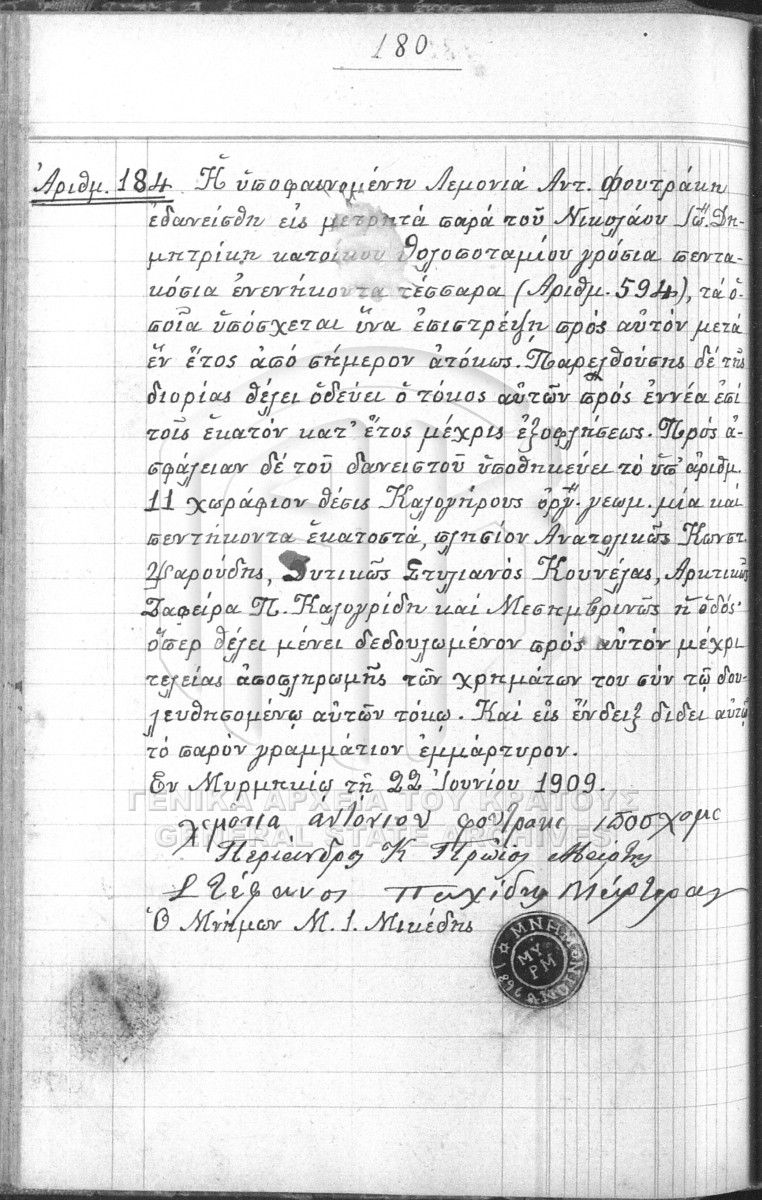 180
Ἀριθμ. 184. Ἡ ὑποφαινομένη Λεμονιά Αντ. Φουτράκη
ἐδανείσθη εἰς μετρητά παρά τοῦ Νικολάου Ἰω. Δη-
μητρίκη κατοίκου Θολοποταμίου γρόσια πεντα-
κόσια ἐνενήκοντα τέσσαρα (Ἀριθμ. 594), τά ὁ-
ποῖα ὑπόσχεται ἵνα ἐπιστρέψῃ πρός αὐτόν μετά
ἕν ἔτος ἀπό σήμερον ἀτόκως. Παρελθούσης δέ τῆς
διορίας θέλει ὁδεύει ὁ τόκος αὐτῶν πρός ἐννέα ἐπί
τοῖς ἑκατόν κατ' ἔτος μέχρις ἐξοφλήσεως. Πρός ἀ-
σφάλειαν δέ τοῦ δανειστοῦ ὑποθηκεύει τό ὑπ' ἀριθμ.
11 χωράφιον θέσις Καλογήρους ὀργ. γεωμ. μία καί
πεντήκοντα ἑκατοστά, πλησίον Ανατολικῶς Κωνστ.
Ψαρούδης, Δυτικῶς Στυλιανός Κουνέλας, Αρκτικῶς
Ζαφείρα Π. Καλογρίδη καί Μεσημβρινῶς ἡ ὁδός·
ὅπερ θέλει μένει δεδουλωμένον πρός αὐτόν μέχρι
τελείας ἀποπληρωμῆς τῶν χρημάτων του σύν τῷ δου-
λευθησομένῳ αὐτῶν τόκῳ. Καί εἰς ἔνδειξ δίδει αὐτῷ
τό παρον γραμμάτιον ἐμμάρτυρον.
Εν Μυρμηκίῳ τῇ 22 Ἰουνίου 1909.
ΓΕΝΙΚΑ ΑΡΧΕΙΑ ΤΟΥ ΚΡΑΤΟΥΣ
GENERAL STATE ARCHIVES
αντονιου φουτρακι ιποσχομε
Περίανδρος Κ Πρώιος
Στέφανος Παχίδης Μάρτυρας
Ὁ Μνήμων Μ. Ι. Μικέδης
ΜΝΗΜΟΝΙΟΝ
ΜΥ
ΡΜ
1896